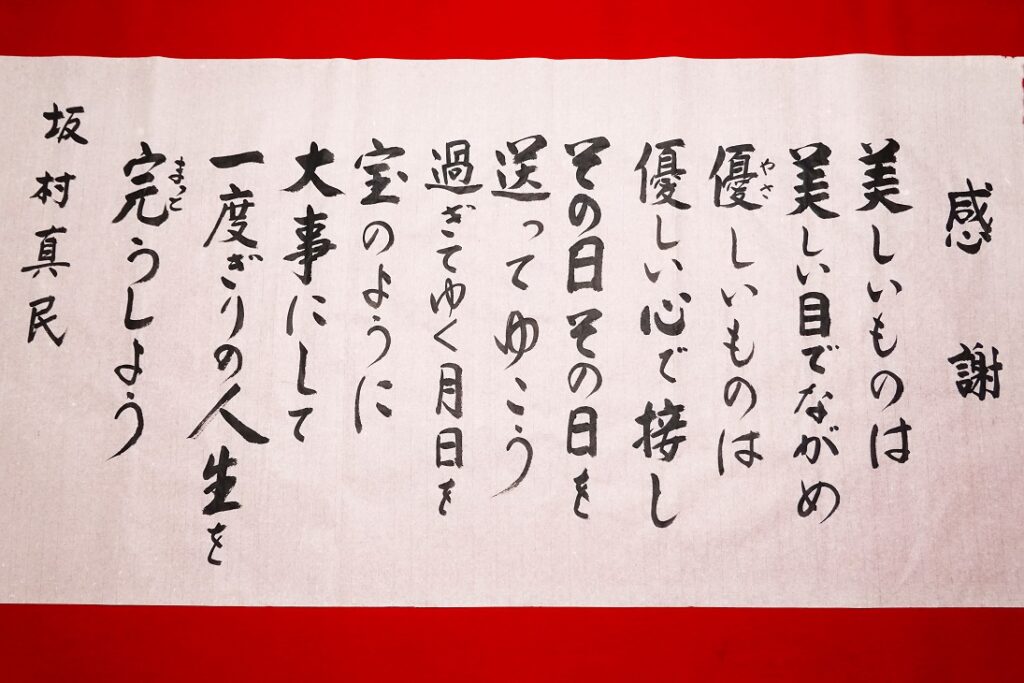 感謝
美しいものは
美しい目でながめ
優しいものは
やさ
優しい心で接し
その日その日を
送ってゆこう
過ぎてゆく月日を
宝のように
大事にして
一度ぎりの人生を
完うしよう
まっと
坂村真民